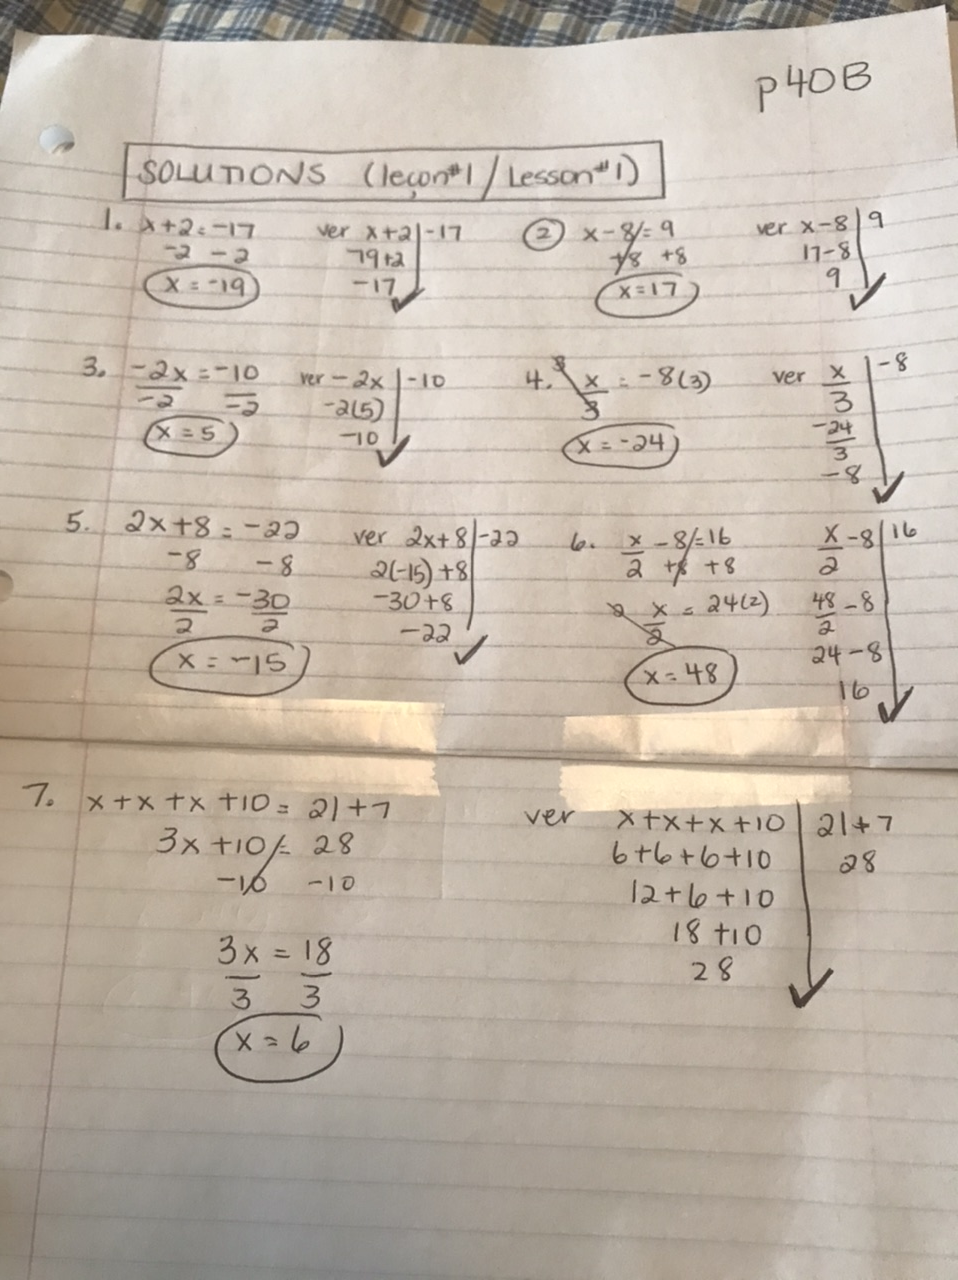 p40B
SOLUTIONS (leçon #1 / Lesson #1)
1. x+2 = -17
-2 -2
x = -19
ver x+2 | -17
-19+2
-17 ✓
2 x-8 = 9
+8 +8
x = 17
ver x-8 | 9
17-8
9 ✓
3. -2x = -10
-2 -2
x = 5
ver -2x | -10
-2(5)
-10 ✓
4. 3 x/3 = -8(3)
x = -24
ver x/3 | -8
-24/3
-8 ✓
5. 2x+8 = -22
-8 -8
2x/2 = -30/2
x = -15
ver 2x+8 | -22
2(-15)+8
-30+8
-22 ✓
6. x/2 - 8 = 16
+8 +8
2 x/2 = 24(2)
x = 48
x/2 - 8 | 16
48/2 - 8
24-8
16 ✓
7. x+x+x+10 = 21+7
3x+10 = 28
-10 -10
3x/3 = 18/3
x = 6
ver x+x+x+10 | 21+7
6+6+6+10 | 28
12+6+10
18+10
28 ✓